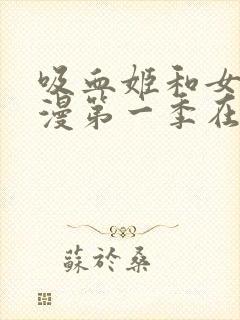 吸血姬和女
漫第一季在
蘇於桑